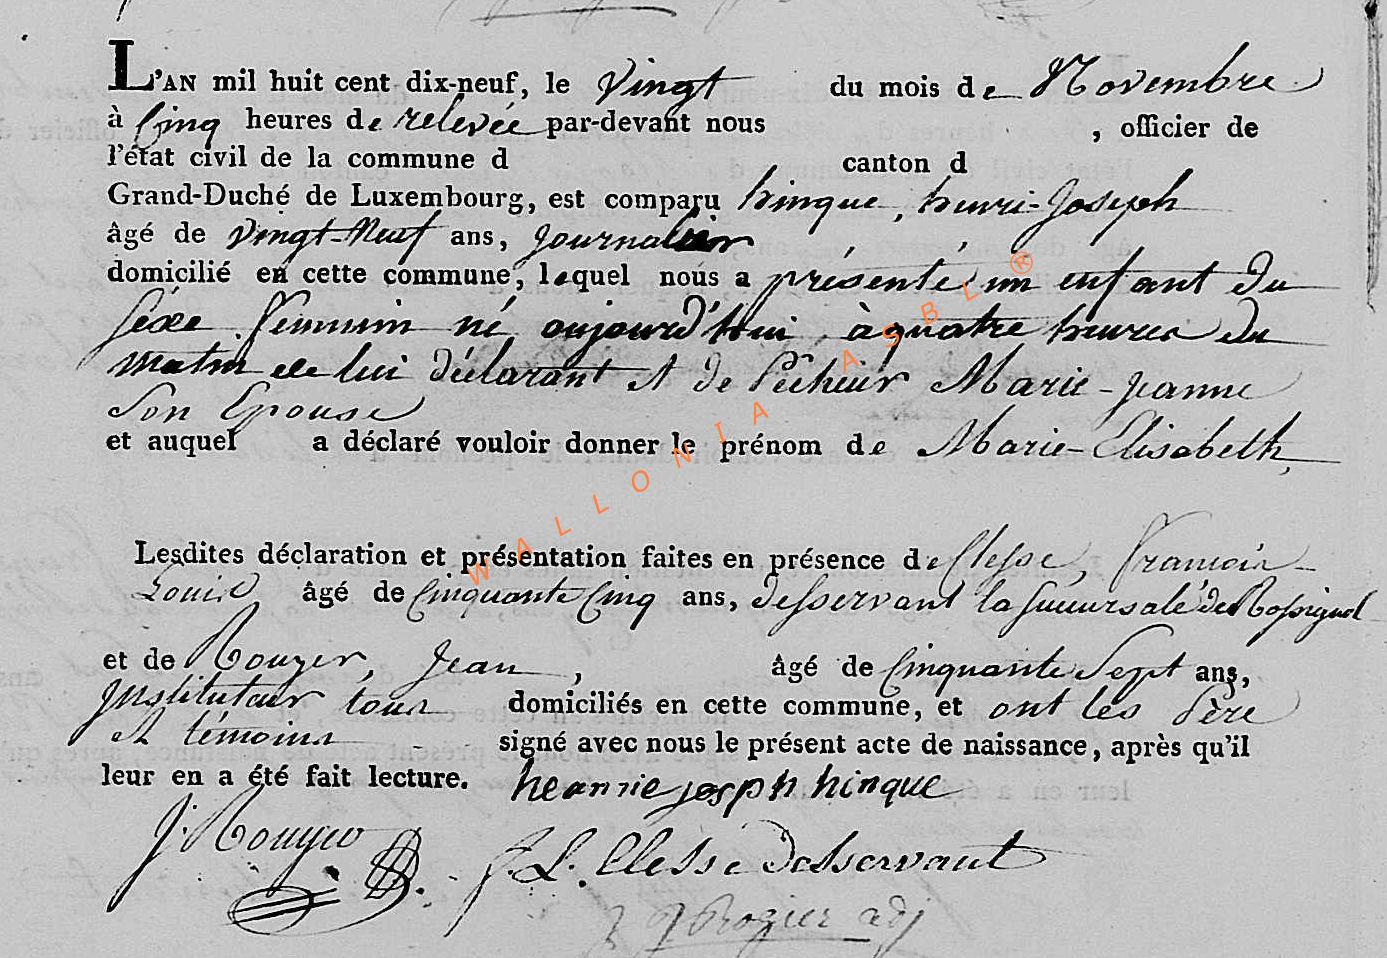 L'AN mil huit cent dix-neuf, le Vingt du mois de Novembre
à Cinq heures de relevée par-devant nous , officier de
l'état civil de la commune d canton d
Grand-Duché de Luxembourg, est comparu hinque, henri-Joseph
âgé de Vingt-Neuf ans, Journalier
domicilié en cette commune, lequel nous a présenté un enfant du
séxe féminin né aujourd'hui à quatre heures du
matin de lui déclarant et de Pêcheur Marie-Jeanne
Son Epouse
et auquel a déclaré vouloir donner le prénom de Marie-Elisabeth,
WALLONIA ASBL ®
Lesdites déclaration et présentation faites en présence de Clesse, françois-
Louis âgé de Cinquante Cinq ans, desservant la succursale de Rossignol
et de Rouyer, Jean, âgé de Cinquante Sept ans,
Instituteur tous domiciliés en cette commune, et ont les Père
et témoins signé avec nous le présent acte de naissance, après qu'il
leur en a été fait lecture. heannie josph hinque
J. Rouyer
f. L. Clesse desservant
Rozier adj